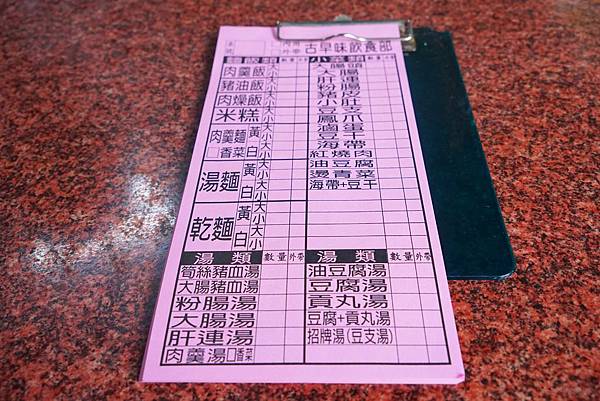 桌號 內用 外帶 古早味飲食部
麵飯類 數量 外帶 小菜類 數量 外帶
肉羹飯 大 小
豬油飯 大 小
肉燥飯 大 小
米糕 大 小
肉羹麵 □香菜 黃 大 小 白 大 小
湯麵 黃 大 小 白 大 小
乾麵 黃 大 小 白 大 小
大腸頭
大腸
肝連
粉腸
豬皮
小肚
豆支
鳳爪
滷蛋
豆干
海帶
紅燒肉
油豆腐
燙青菜
海帶+豆干
湯類 數量 外帶 湯類 數量 外帶
筍絲豬血湯
大腸豬血湯
粉腸湯
大腸湯
肝連湯
肉羹湯□香菜
油豆腐湯
豆腐湯
貢丸湯
豆腐+貢丸湯
招牌湯(豆支湯)